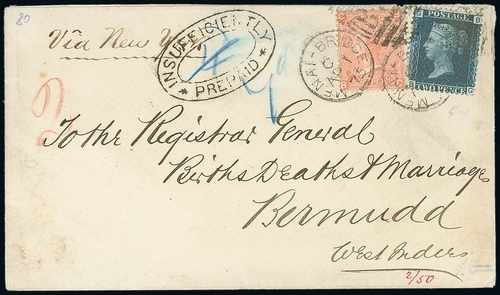 80
Via New Y
INSUFFICIENTLY
PREPAID
MENAI-BRIDGE
POSTAGE
TWO PENCE
2
To the Registrar General
Births Deaths & Marriages
Bermuda
West Indies
2/50